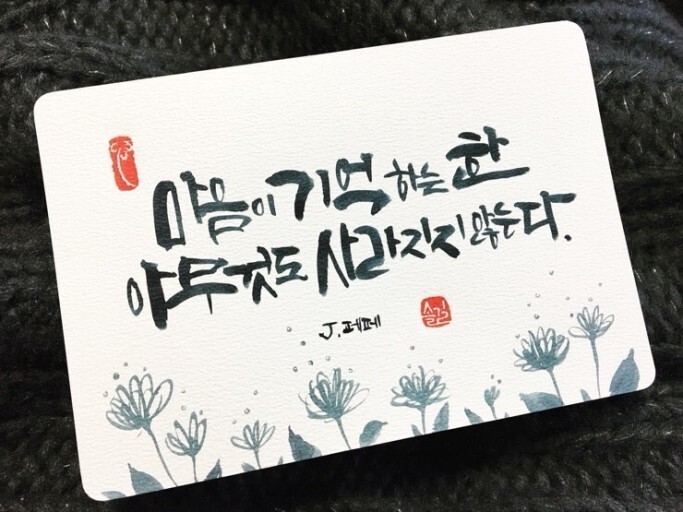 마음이 기억 하는 한
아무것도 사라지지 않는다.
J.페페